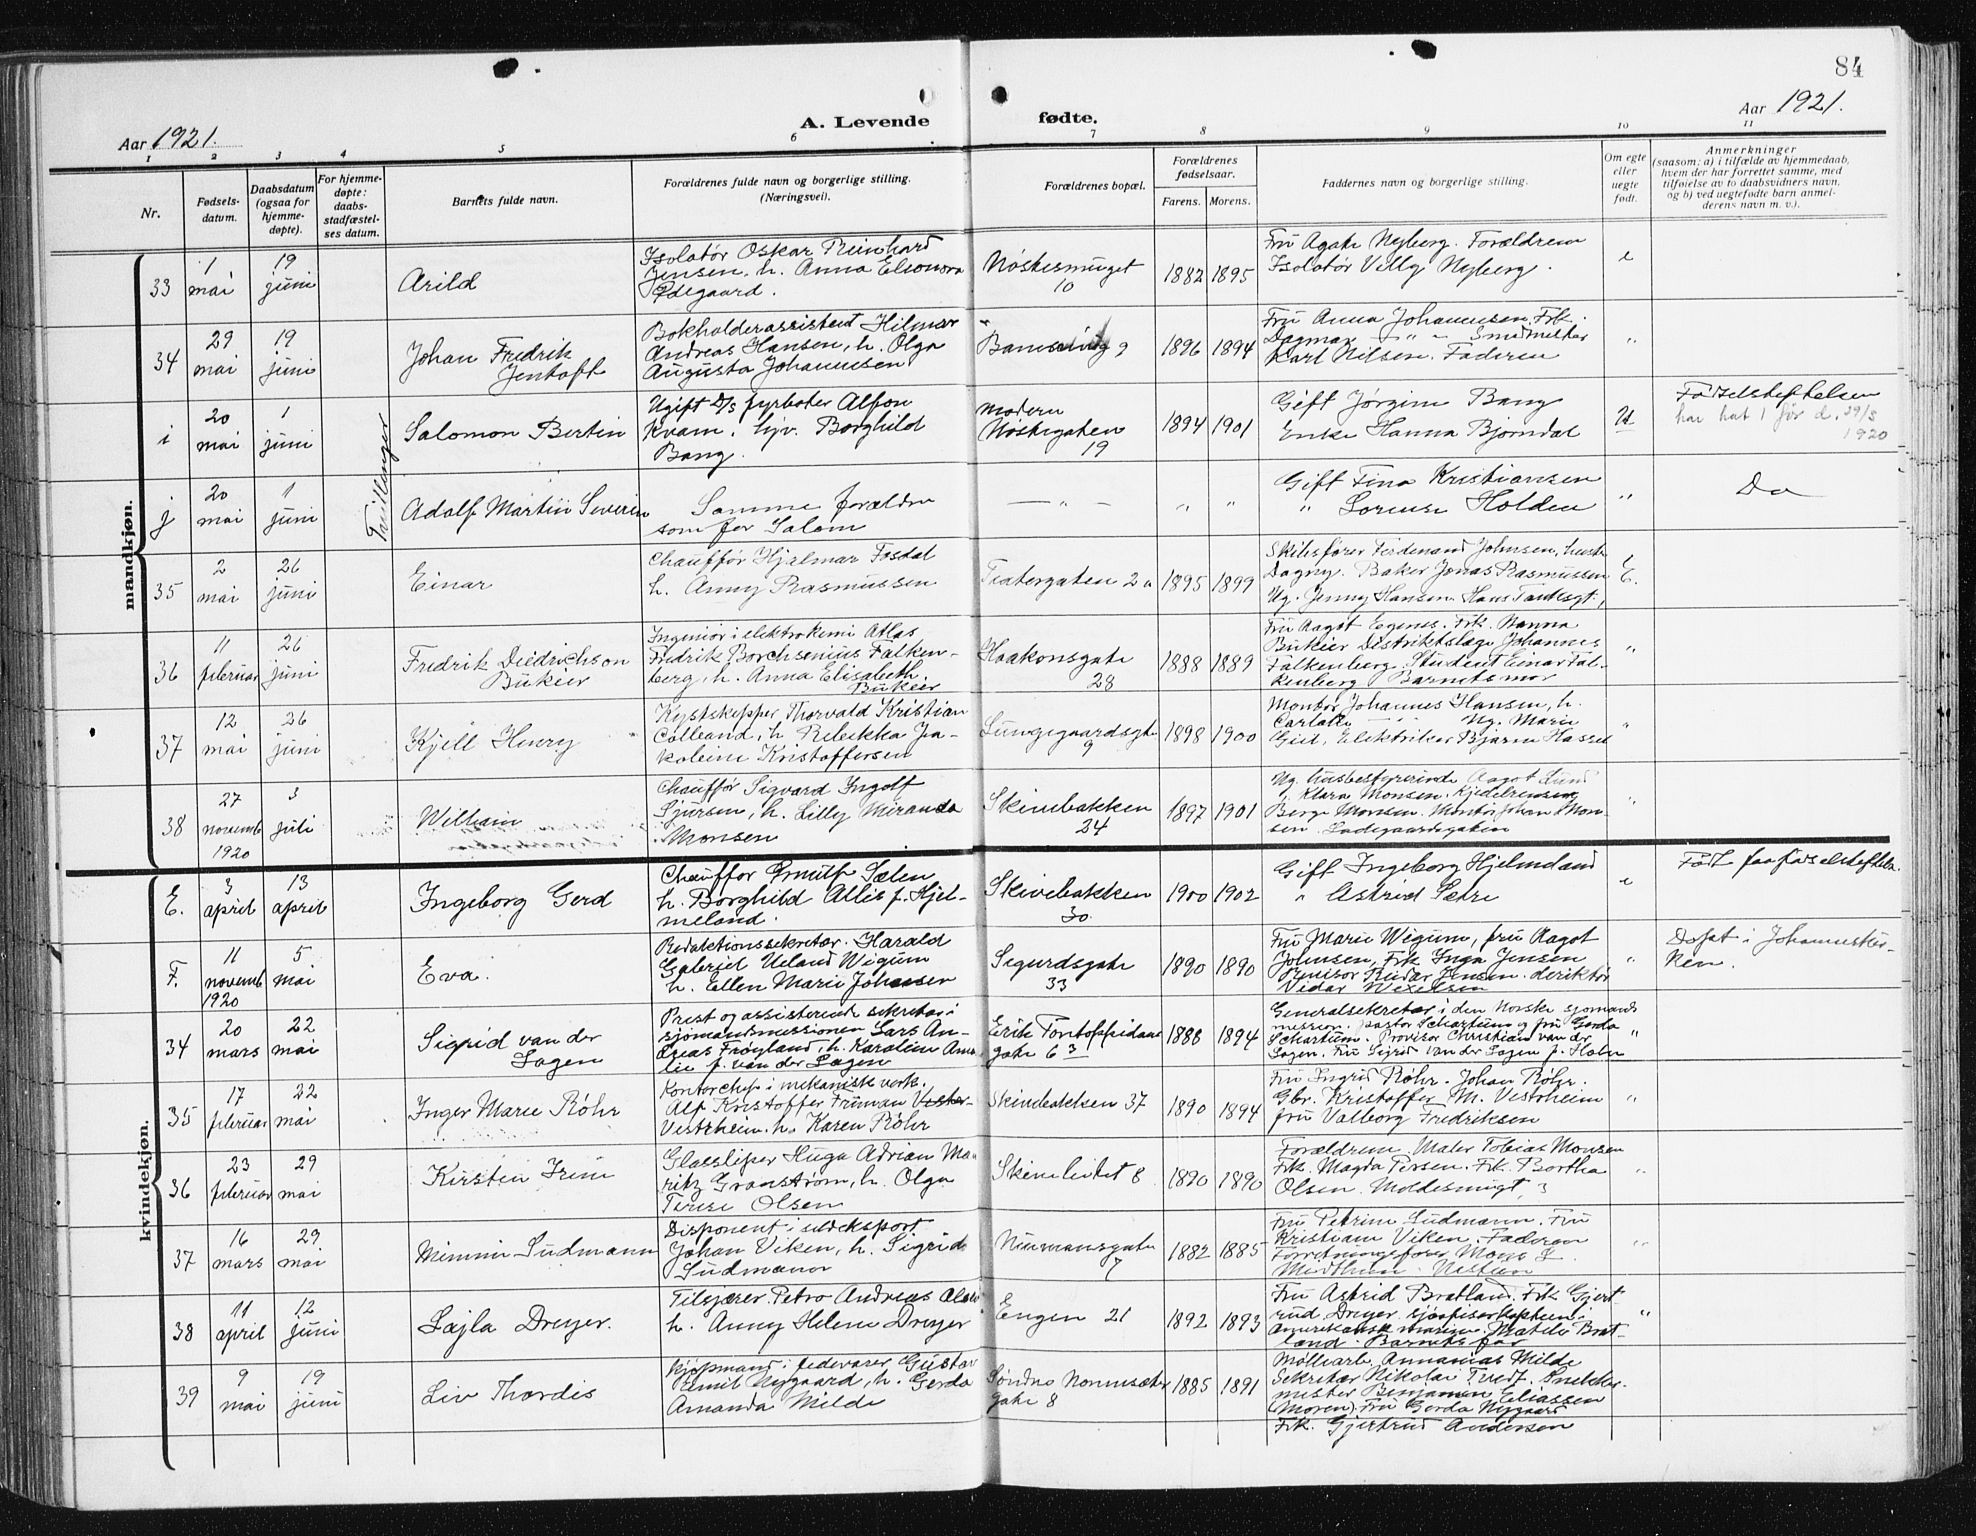 84
Aar 1921.
A. Levende
fødte.
Aar 1921.
1 2 3 4 5 6 7 8 9 10 11
Nr.
Fødsels-
datum.
Daabsdatum
(ogsaa for
hjemme-
døpte).
For hjemme-
døpte:
daabs-
stadfæstel-
ses datum.
Barnets fulde navn.
Forældrenes fulde navn og borgerlige stilling.
(Næringsvei).
Forældrenes bopæl.
Forældrenes
fødselsaar.
Farens. Morens.
Faddernes navn og borgerlige stilling.
Om egte
eller
uegte
født.
Anmerkninger
(saasom: a) i tilfælde av hjemmedaab,
hvem der har forrettet samme, med
tilføielse av to daabsvidners navn,
og b) ved uegtefødte barn anmel-
derens navn m. v.).
mandkjøn.
33
1
mai
19
juni
Arild
Isolatør Oskar Reinhard
Jensen, h. Anna Eleonora
Ødegaard.
Nøstesmuget
10
1882 1895
Fru Agate Nyberg. Forældrene
Isolatør Villy Nyberg.
e
34
29
mai
19
juni
Johan Fredrik
Jentoft
Bokholderassistent Hilmar
Andreas Hansen, h. Olga
Augusta Johannesen
9
1896 1894
Fru Anna Johannesen, Frk.
Dagmar — " — Smedmester
Karl Nilsen. Faderen
"
i
20
mai
1
juni
Tvillinger
Salomon Bertin
Ugift D/s fyrbøter Alfon
Kvam. Syv. Borghild
Bang.
Modern
Nøstegaten
19
1894 1901
Gift Jørgine Bang
Enke Hanna Bjørndal
U
Fødselsstiftelsen
har hat 1 før d. 29/8
1920
j
20
mai
1
juni
Adolf Martin Severin
Samme forældre
som for Salom
— " —
" "
Gift Fina Kristiansen
" Sorense Holden
"
Do
35
2
mai
26
juni
Einar
Chauffør Hjalmar Fosdal
h. Anny Rasmussen
Teatergaten 2a
1895 1899
Skibsfører Ferdinand Johnsen, hustr
Dagny. Baker Jonas Rasmussen
Ug. Jenny Hansen Hans Tanksgt.,
E.
36
11
februar
26
juni
Fredrik Diedrichson
Bukier
Ingeniør i elektrokemi Atlas
Fredrik Borchsenius Falken-
berg, h. Anna Elisabeth
Bukier
Haakonsgate
28
1888 1889
Fru Aagot Egenes. Frk. Nanna
Bukier Distriktslæge Johannes
Falkenberg. Student Einar Fal-
kenberg Barnets mor
"
37
12
mai
26
juni
Kjell Henry
Kystskipper Thorvald Kristian
Calleand, h. Rebekka Ja-
kobine Kristoffersen
Lungegaardsgte
9
1898 1900
Montør Johannes Hansen, h.
Carlotte — " — Ug. Marie
Giil, Elektriker Bjarne Hassel
"
38
27
novemb
1920
3
juli
William
Chauffør Sigvard Ingolf
Sjursen, h. Lilly Miranda
Monsen
Skivebakken
24
1897 1901
Ug. husbestyrerinde Aagot Lund
" Klara Monsen. Kjedelrensing
Berge Monsen. Montør Johan Mon-
sen. Ladegaardsgaten
"
kvindekjøn.
E.
3
april
13
april
Ingeborg Gerd
Chauffør Ørnulf Sælen
h. Borghild Allis f. Hjel-
meland.
Skivebakken
30
1900 1902
Gift Ingeborg Hjelmeland
" Astrid Sætre
e
Født paa fødselsstiftels.
F.
11
novemb
1920
5
mai
Eva.
Redaktionssekretær. Harald
Gabriel Ueland Wigum
h. Ellen Marie Johansen
Sigurdsgate
33
1890 1890
Fru Marie Wigum, fru Aagot
Johnsen, Frk Inga Jensen
Revisor Reidar Jensen. direktør
Vidar Wexelsen
"
Døpt i Johanneskir-
ken.
34
20
mars
22
mai
Sigrid van der
Lagen
Prest og assisterende sekretær i
sjømandsmissionen Lars An-
dreas Frøyland, h. Karoline Ama-
lie f. van der Lagen
Erik Pontoppidans
gate 6 3
1888 1894
Generalsekretær i den Norske sjømands
mission. pastor Schartum og fru Gerda
Schartum. Provisor Christian van der
Lagen. Fru Sigrid van der Lagen f. Holm
"
35
17
februar
22
mai
Inger Marie Röhr
Kontorchef i mekaniske verk.
Alf Kristoffer Truman Vester-
Vestrheim. h. Karen Röhr
Skivebakken 37
1890 1894
Fru Ingrid Röhr. Johan Röhr.
Gbr. Kristoffer M. Vestrheim
fru Valborg Fredriksen
"
36
23
februar
29
mai
Kirsten Irene
Glassliper Hugo Adrian Ma
ritz Granstrøm, h. Olga
Terese Olsen
Skivebeitet 8
1890 1890
Forældrene. Maler Tobias Monsen
Frk. Magda Persen. Frk. Bertha
Olsen. Moldesmugt, 3
"
37
16
mars
29
mai
Mimmi Sudmann
Disponent i sildeksport
Johan Viken, h. Sigrid
Sudmann
Neumannsgate
7
1882 1885
Fru Petrine Sudmann. Fru
Kristiane Viken. Faderen
Forretningsfører Mons J.
Midthun. Nestun
"
38
11
april
12
juni
Lajla Dreyer.
Tilsjærer. Petro Andreas
h. Anny Helene Dreyer
Engen 21
1892 1893
Fru Astrid Bratland. Frk Gjert
rud Dreyer. Sjøofiser kaptein i
Amerikansk marine Matilo Brat-
land. Barnets far
"
39
9
mai
19
juni
Liv Thordis
Kjøpmand i fedevarer Gustav
Emil Nygaard, h. Gerda
Amanda Milde
Søndre Nonnesæter
gate 8
1885 1891
Møllearb. Annanias Milde
Sekretær Nikolai Tredt. Snekker-
mester Benjamin Eliassen
(Moren). Fru Gerda Nygaard
Frk. Gjertrud Andersen